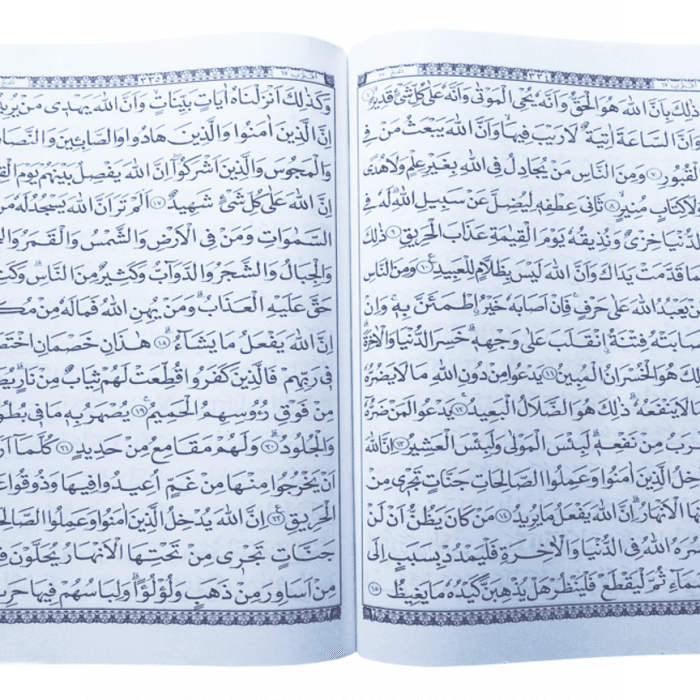 ذٰلِكَ بِاَنَّ اللّٰهَ هُوَ الْحَقُّ وَاَنَّهُ يُحْيِ الْمَوْتٰى وَاَنَّهُ عَلٰى كُلِّ شَيْءٍ قَدِيرٌ ﴿٦﴾
وَاَنَّ السَّاعَةَ اٰتِيَةٌ لَا رَيْبَ فِيهَا وَاَنَّ اللّٰهَ يَبْعَثُ مَنْ فِي
الْقُبُورِ ﴿٧﴾ وَمِنَ النَّاسِ مَنْ يُجَادِلُ فِي اللّٰهِ بِغَيْرِ عِلْمٍ وَلَا هُدًى
وَلَا كِتَابٍ مُنِيرٍ ﴿٨﴾ ثَانِيَ عِطْفِهِ لِيُضِلَّ عَنْ سَبِيلِ اللّٰهِ لَهُ فِي
الدُّنْيَا خِزْيٌ وَنُذِيقُهُ يَوْمَ الْقِيٰمَةِ عَذَابَ الْحَرِيقِ ﴿٩﴾ ذٰلِكَ
بِمَا قَدَّمَتْ يَدَاكَ وَاَنَّ اللّٰهَ لَيْسَ بِظَلَّامٍ لِلْعَبِيدِ ﴿١٠﴾ وَمِنَ النَّاسِ
مَنْ يَعْبُدُ اللّٰهَ عَلٰى حَرْفٍ فَاِنْ اَصَابَهُ خَيْرٌ اطْمَئَنَّ بِهِ وَاِنْ
اَصَابَتْهُ فِتْنَةٌ انْقَلَبَ عَلٰى وَجْهِهِ خَسِرَ الدُّنْيَا وَالْاٰخِرَةَ
ذٰلِكَ هُوَ الْخُسْرَانُ الْمُبِينُ ﴿١١﴾ يَدْعُوا مِنْ دُونِ اللّٰهِ مَا لَا يَضُرُّهُ
وَمَا لَا يَنْفَعُهُ ذٰلِكَ هُوَ الضَّلَالُ الْبَعِيدُ ﴿١٢﴾ يَدْعُوا لَمَنْ ضَرُّهُ
اَقْرَبُ مِنْ نَفْعِهِ لَبِئْسَ الْمَوْلٰى وَلَبِئْسَ الْعَشِيرُ ﴿١٣﴾ اِنَّ اللّٰهَ
يُدْخِلُ الَّذِينَ اٰمَنُوا وَعَمِلُوا الصَّالِحَاتِ جَنَّاتٍ تَجْرِي مِنْ
تَحْتِهَا الْاَنْهَارُ اِنَّ اللّٰهَ يَفْعَلُ مَا يُرِيدُ ﴿١٤﴾ مَنْ كَانَ يَظُنُّ اَنْ لَنْ
يَنْصُرَهُ اللّٰهُ فِي الدُّنْيَا وَالْاٰخِرَةِ فَلْيَمْدُدْ بِسَبَبٍ اِلَى
السَّمَاءِ ثُمَّ لْيَقْطَعْ فَلْيَنْظُرْ هَلْ يُذْهِبَنَّ كَيْدُهُ مَا يَغِيظُ ﴿١٥﴾
وَكَذٰلِكَ اَنْزَلْنَاهُ اٰيَاتٍ بَيِّنَاتٍ وَاَنَّ اللّٰهَ يَهْدِي مَنْ
اِنَّ الَّذِينَ اٰمَنُوا وَالَّذِينَ هَادُوا وَالصَّابِئِينَ
وَالْمَجُوسَ وَالَّذِينَ اَشْرَكُوا اِنَّ اللّٰهَ يَفْصِلُ بَيْنَهُمْ يَوْمَ
اِنَّ اللّٰهَ عَلٰى كُلِّ شَيْءٍ شَهِيدٌ ﴿١٧﴾ اَلَمْ تَرَ اَنَّ اللّٰهَ يَسْجُدُ لَهُ مَنْ
السَّمٰوَاتِ وَمَنْ فِي الْاَرْضِ وَالشَّمْسُ وَالْقَمَرُ
وَالْجِبَالُ وَالشَّجَرُ وَالدَّوَابُّ وَكَثِيرٌ مِنَ النَّاسِ
حَقَّ عَلَيْهِ الْعَذَابُ وَمَنْ يُهِنِ اللّٰهُ فَمَا لَهُ مِنْ
اِنَّ اللّٰهَ يَفْعَلُ مَا يَشَاءُ ﴿١٨﴾ هٰذَانِ خَصْمَانِ
فِي رَبِّهِمْ فَالَّذِينَ كَفَرُوا قُطِّعَتْ لَهُمْ ثِيَابٌ مِنْ نَارٍ
مِنْ فَوْقِ رُؤُسِهِمُ الْحَمِيمُ ﴿١٩﴾ يُصْهَرُ بِهِ مَا فِي
وَالْجُلُودُ ﴿٢٠﴾ وَلَهُمْ مَقَامِعُ مِنْ حَدِيدٍ ﴿٢١﴾ كُلَّمَا
اَنْ يَخْرُجُوا مِنْهَا مِنْ غَمٍّ اُعِيدُوا فِيهَا وَذُوقُوا
الْحَرِيقِ ﴿٢٢﴾ اِنَّ اللّٰهَ يُدْخِلُ الَّذِينَ اٰمَنُوا وَعَمِلُوا
جَنَّاتٍ تَجْرِي مِنْ تَحْتِهَا الْاَنْهَارُ يُحَلَّوْنَ
مِنْ اَسَاوِرَ مِنْ ذَهَبٍ وَلُؤْلُؤًا وَلِبَاسُهُمْ فِيهَا